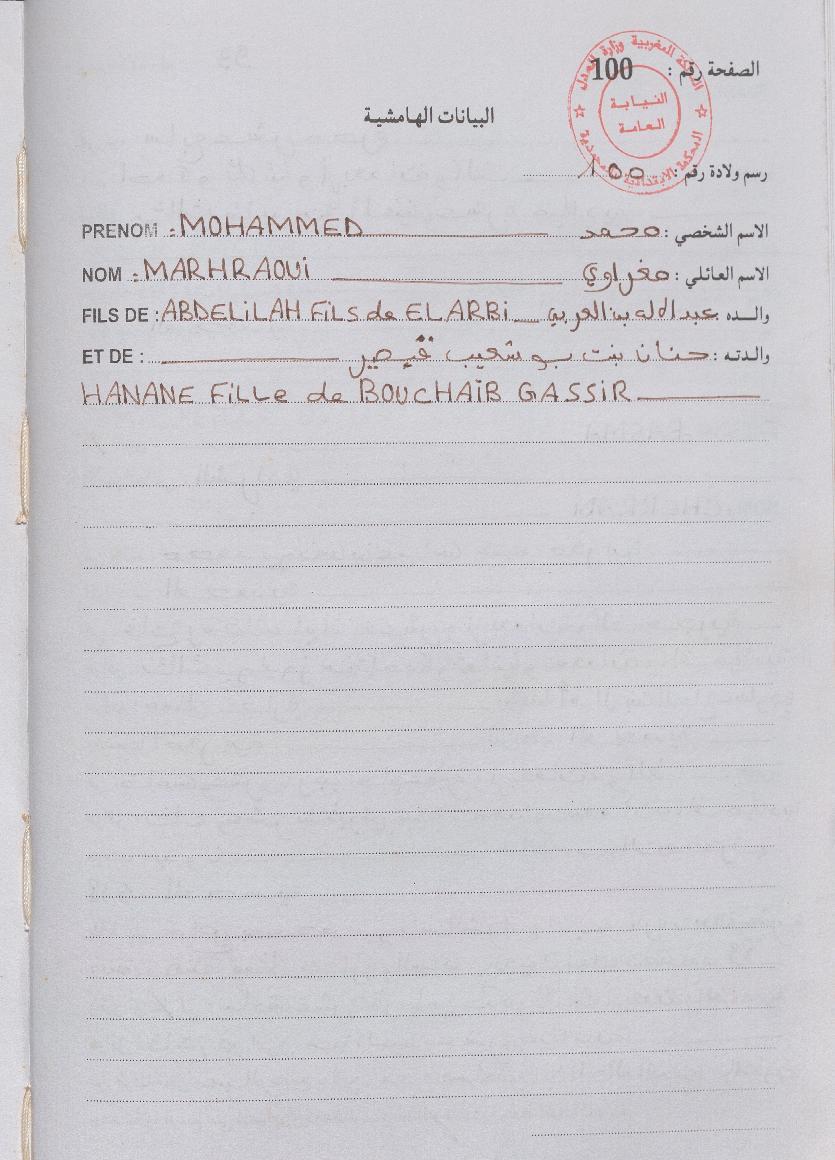 الصفحة رقم : 100
المملكة المغربية وزارة العدل
النيابة
العامة
المحكمة الابتدائية
البيانات الهامشية
رسم ولادة رقم : 100
PRENOM : MOHAMMED الاسم الشخصي : محمد
NOM : MARHRAOUI الاسم العائلي : مغراوي
FILS DE : ABDELILAH FILS de EL ARBI والـــده : عبد الاله بن العربي
ET DE : والدتـه : حنان بنت بوشعيب ڤصير
HANANE FILLE de BOUCHAÏB GASSIR